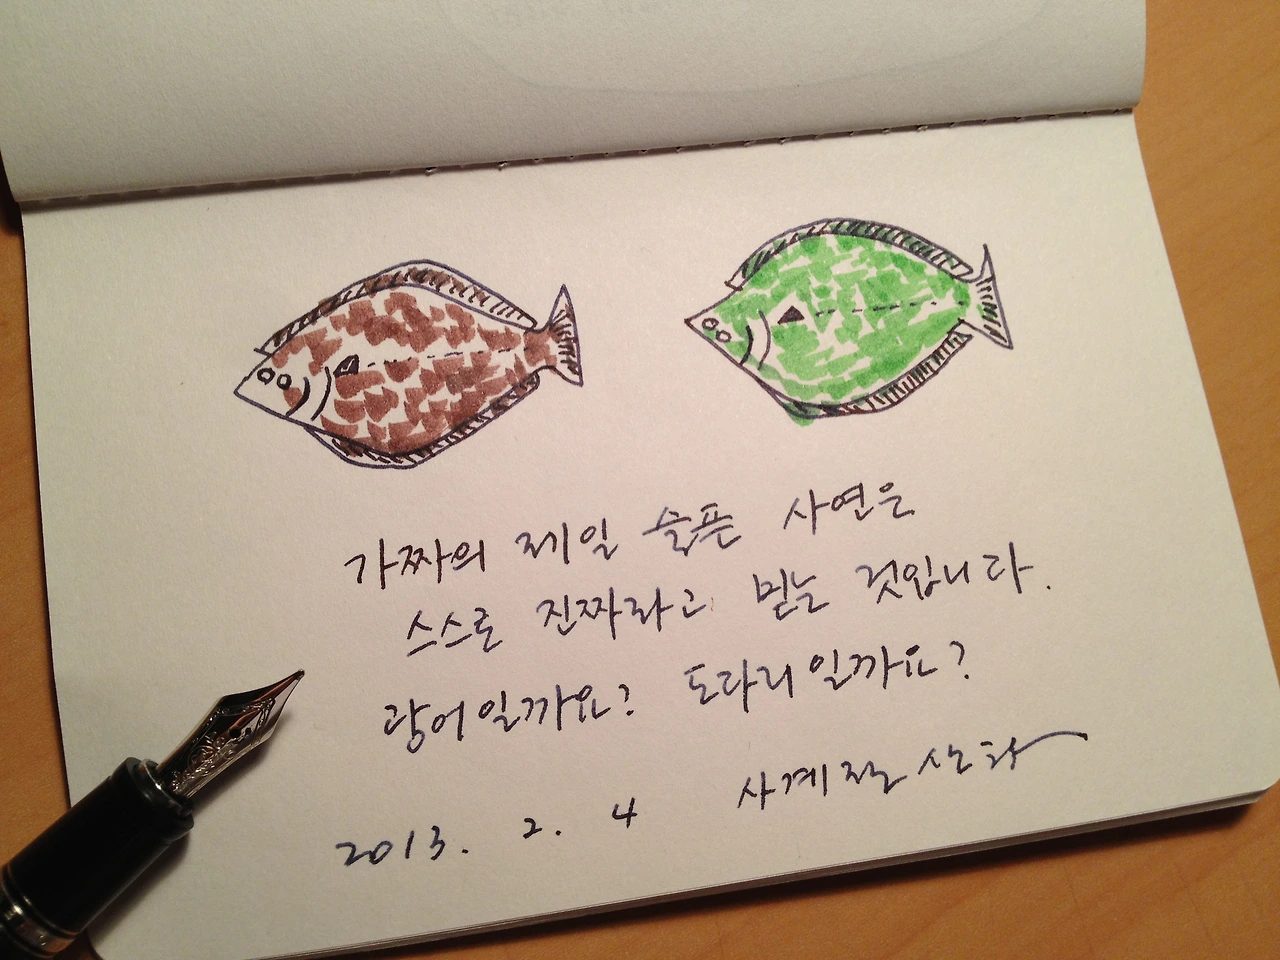 가짜의 제일 슬픈 사연은
스스로 진짜라고 믿는 것입니다.
광어일까요? 도다리일까요?
2013. 2. 4 사계절 산타